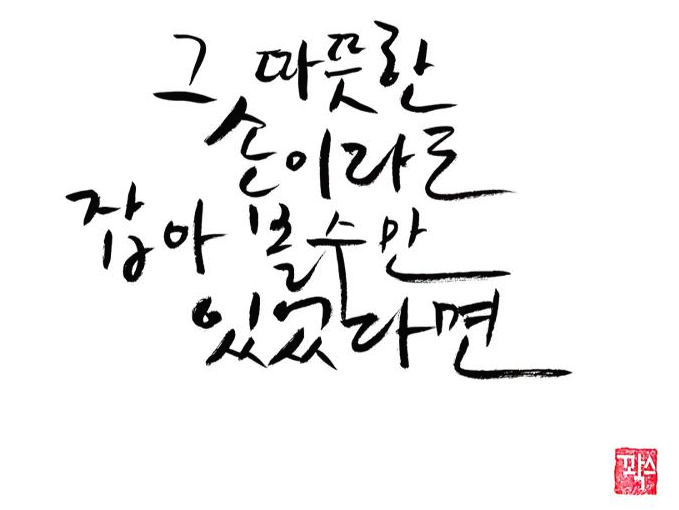 그 따뜻한
손이라도
잡아 볼수만
있었다면
꽉스